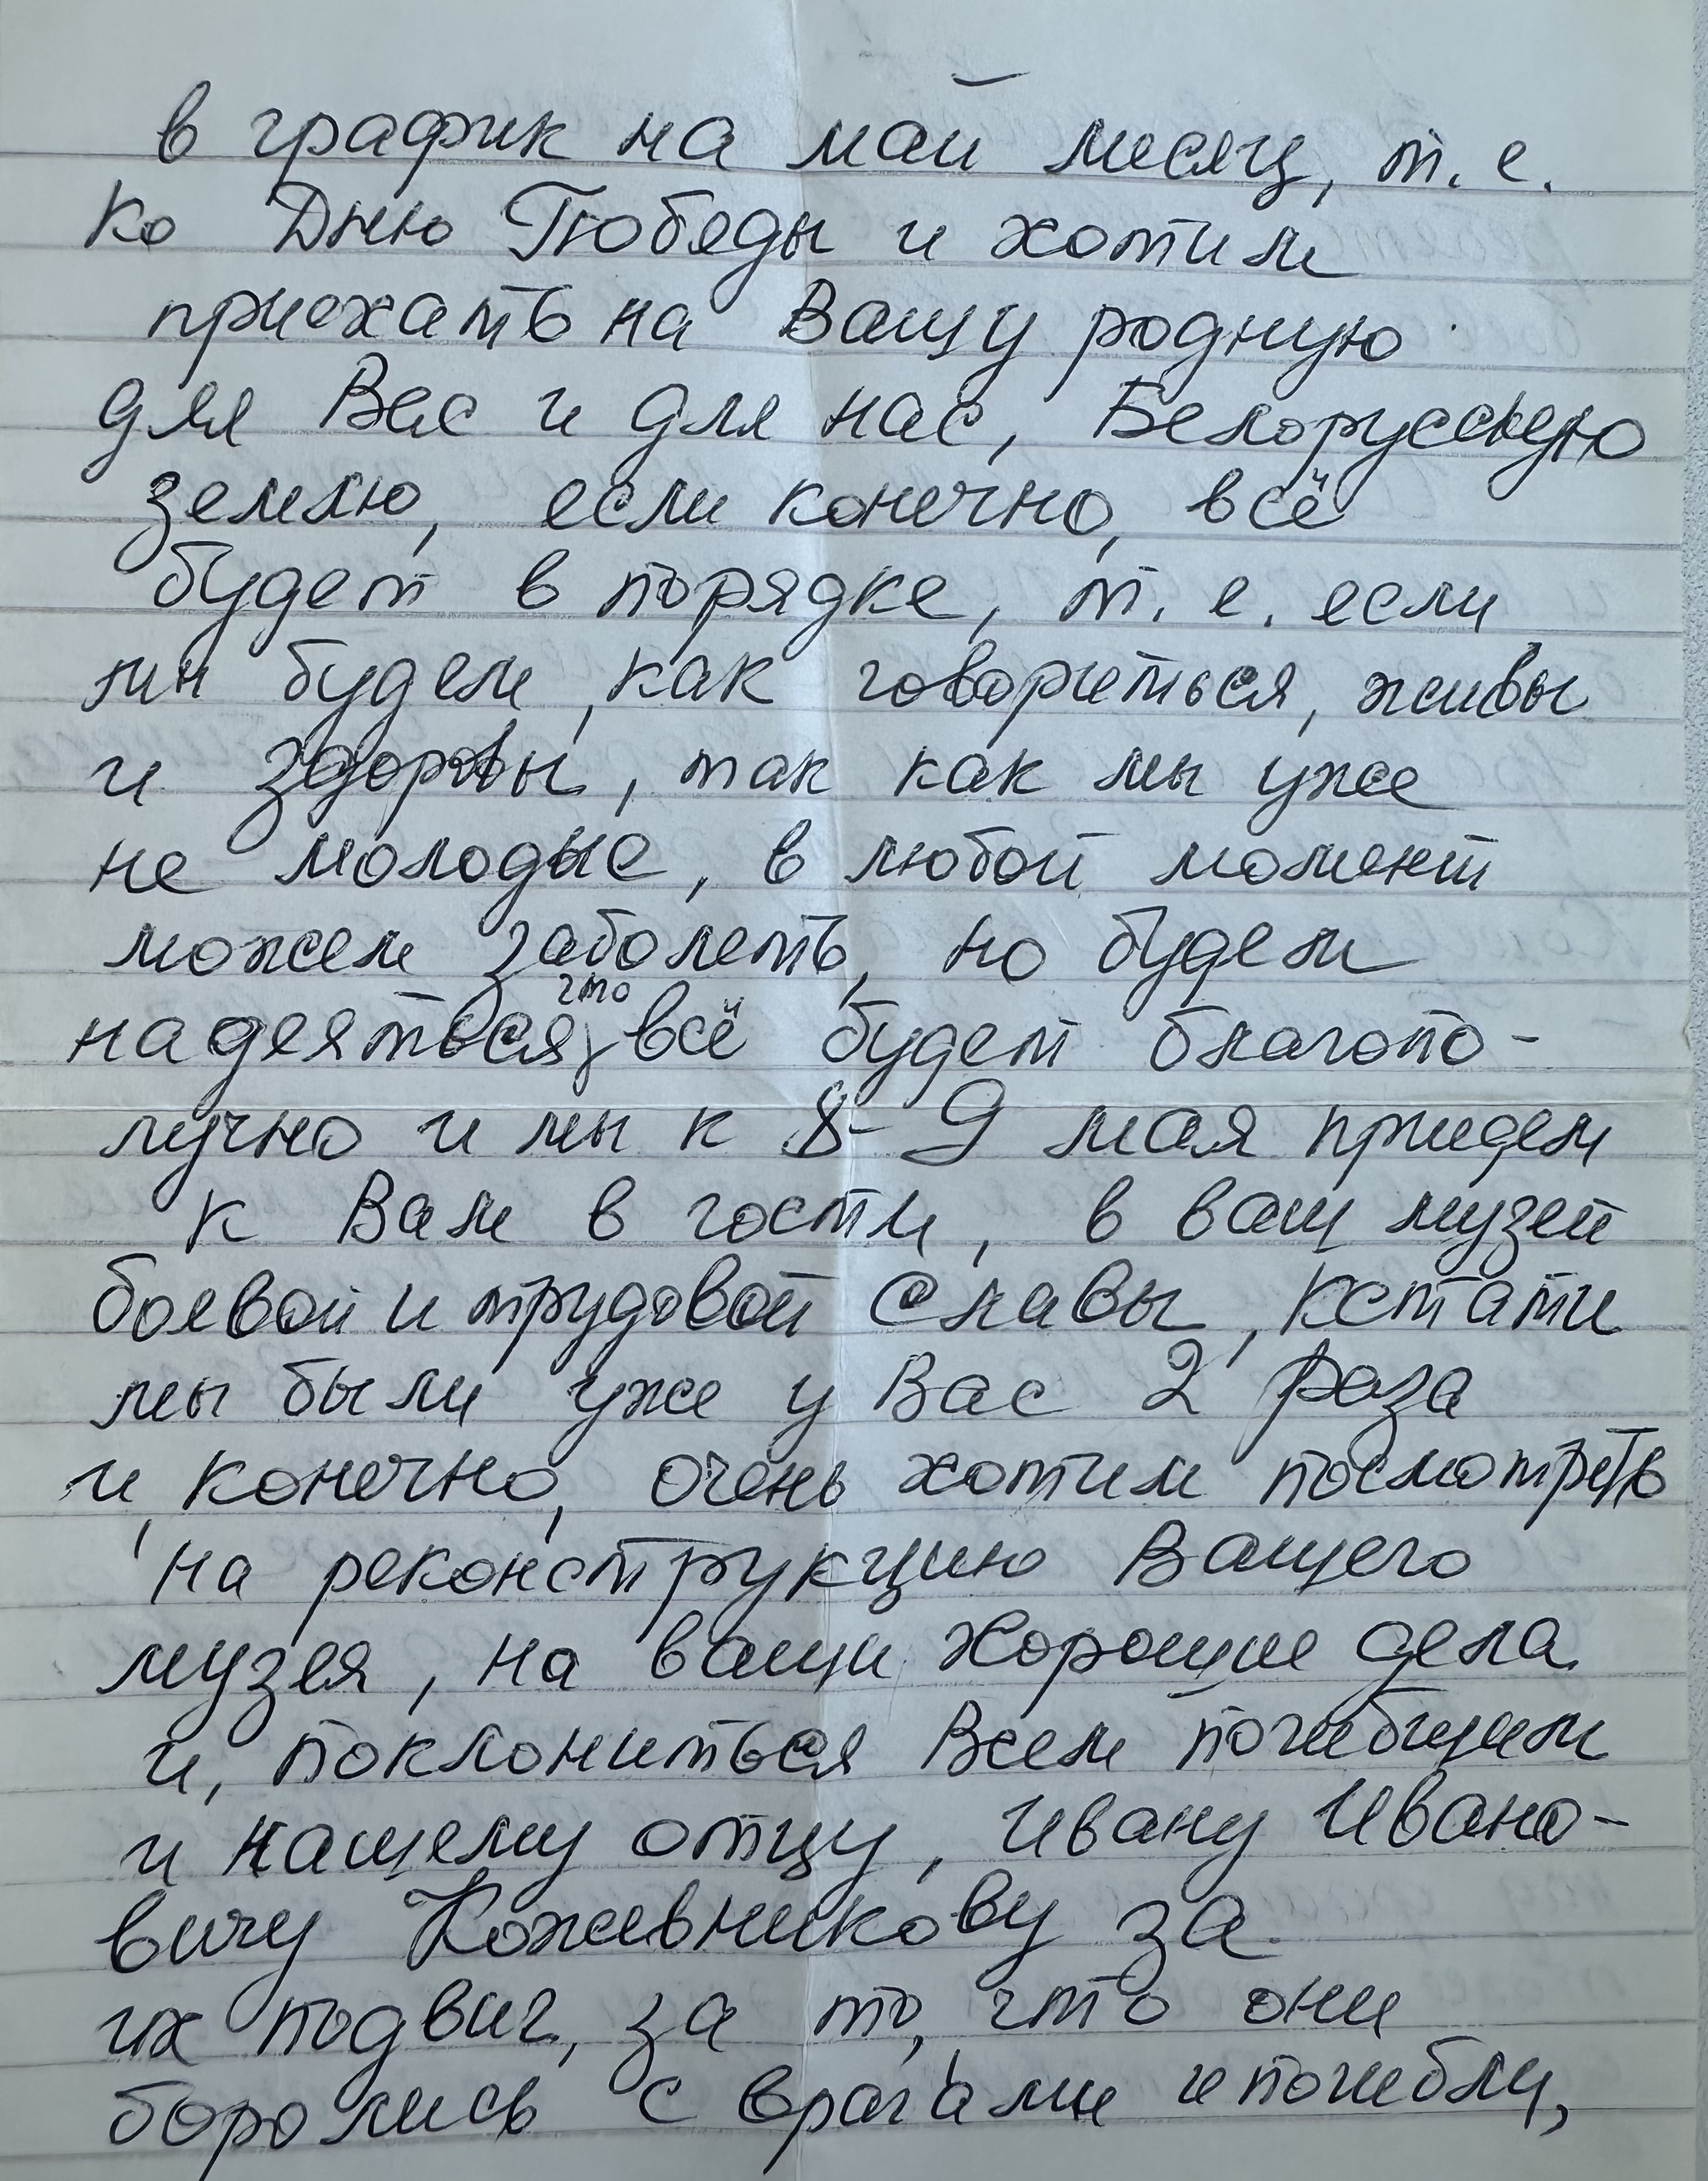 в график на май месяц, т. е.
ко Дню Победы и хотим
приехать на Вашу родную
для Вас и для нас, Белорусскую
землю, если конечно, всё
будет в порядке, т. е. если
мы будем, как говориться, живы
и здоровы, так как мы уже
не молодые, в любой момент
можем заболеть, но будем
надеяться, что всё будет благопо-
лучно и мы к 8-9 мая придем
к Вам в гости, в ваш музей
боевой и трудовой Славы, кстати
мы были уже у Вас 2 раза
и, конечно, очень хотим посмотреть
на реконструкцию Вашего
музея, на ваши хорошие дела
и, поклониться Всем погибшим
и нашему отцу, Ивану Ивано-
вичу Кожевникову за
их подвиг, за то, что они
боролись с врагами и погибли,